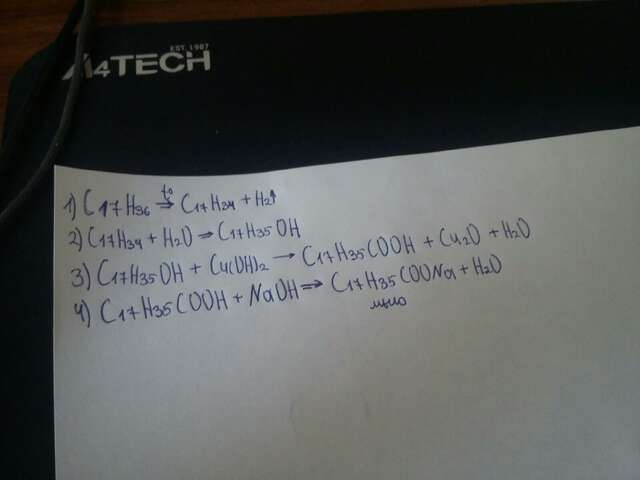 EST. 1987
A4TECH
1) C17H36 t° ⇒ C17H34 + H2↑
2) C17H34 + H2O ⇒ C17H35OH
3) C17H35OH + Cu(OH)2 → C17H35COOH + Cu2O + H2O
4) C17H35COOH + NaOH ⇒ C17H35COONa + H2O
мыло